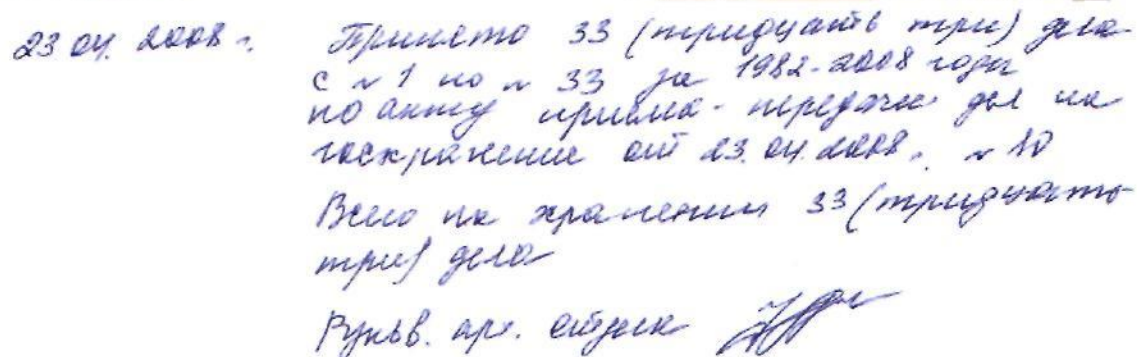 23.04.2008 г. Принято 33 (тридцать три) дела
с № 1 по № 33 за 1982-2008 годы
по акту приема-передачи дел на
госхранение от 23.04.2008 г. № 10
Всего на хранении 33 (тридцать
три) дела
арх. отдела